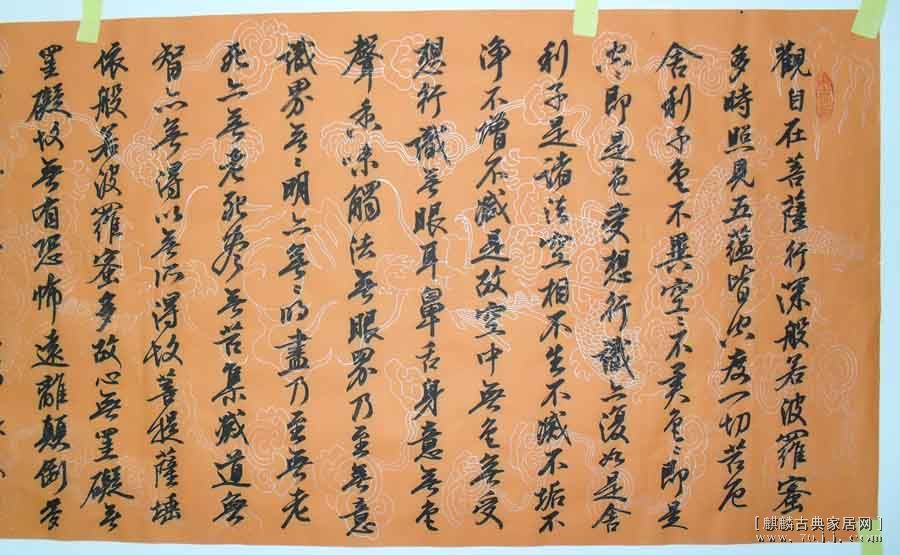 觀自在菩薩行深般若波羅蜜
多時照見五蘊皆空度一切苦厄
舍利子色不異空〻不異色〻即是
空〻即是色受想行識亦復如是舍
利子是諸法空相不生不滅不垢不
淨不增不減是故空中無色無受
想行識無眼耳鼻舌身意無色
聲香味觸法無眼界乃至無意
識界無〻明亦無〻明盡乃至無老
死亦無老死盡無苦集滅道無
智亦無得以無所得故菩提薩埵
依般若波羅蜜多故心無罣礙無
罣礙故無有恐怖遠離顛倒夢
[麒麟古典家居网]
www.70jj.com